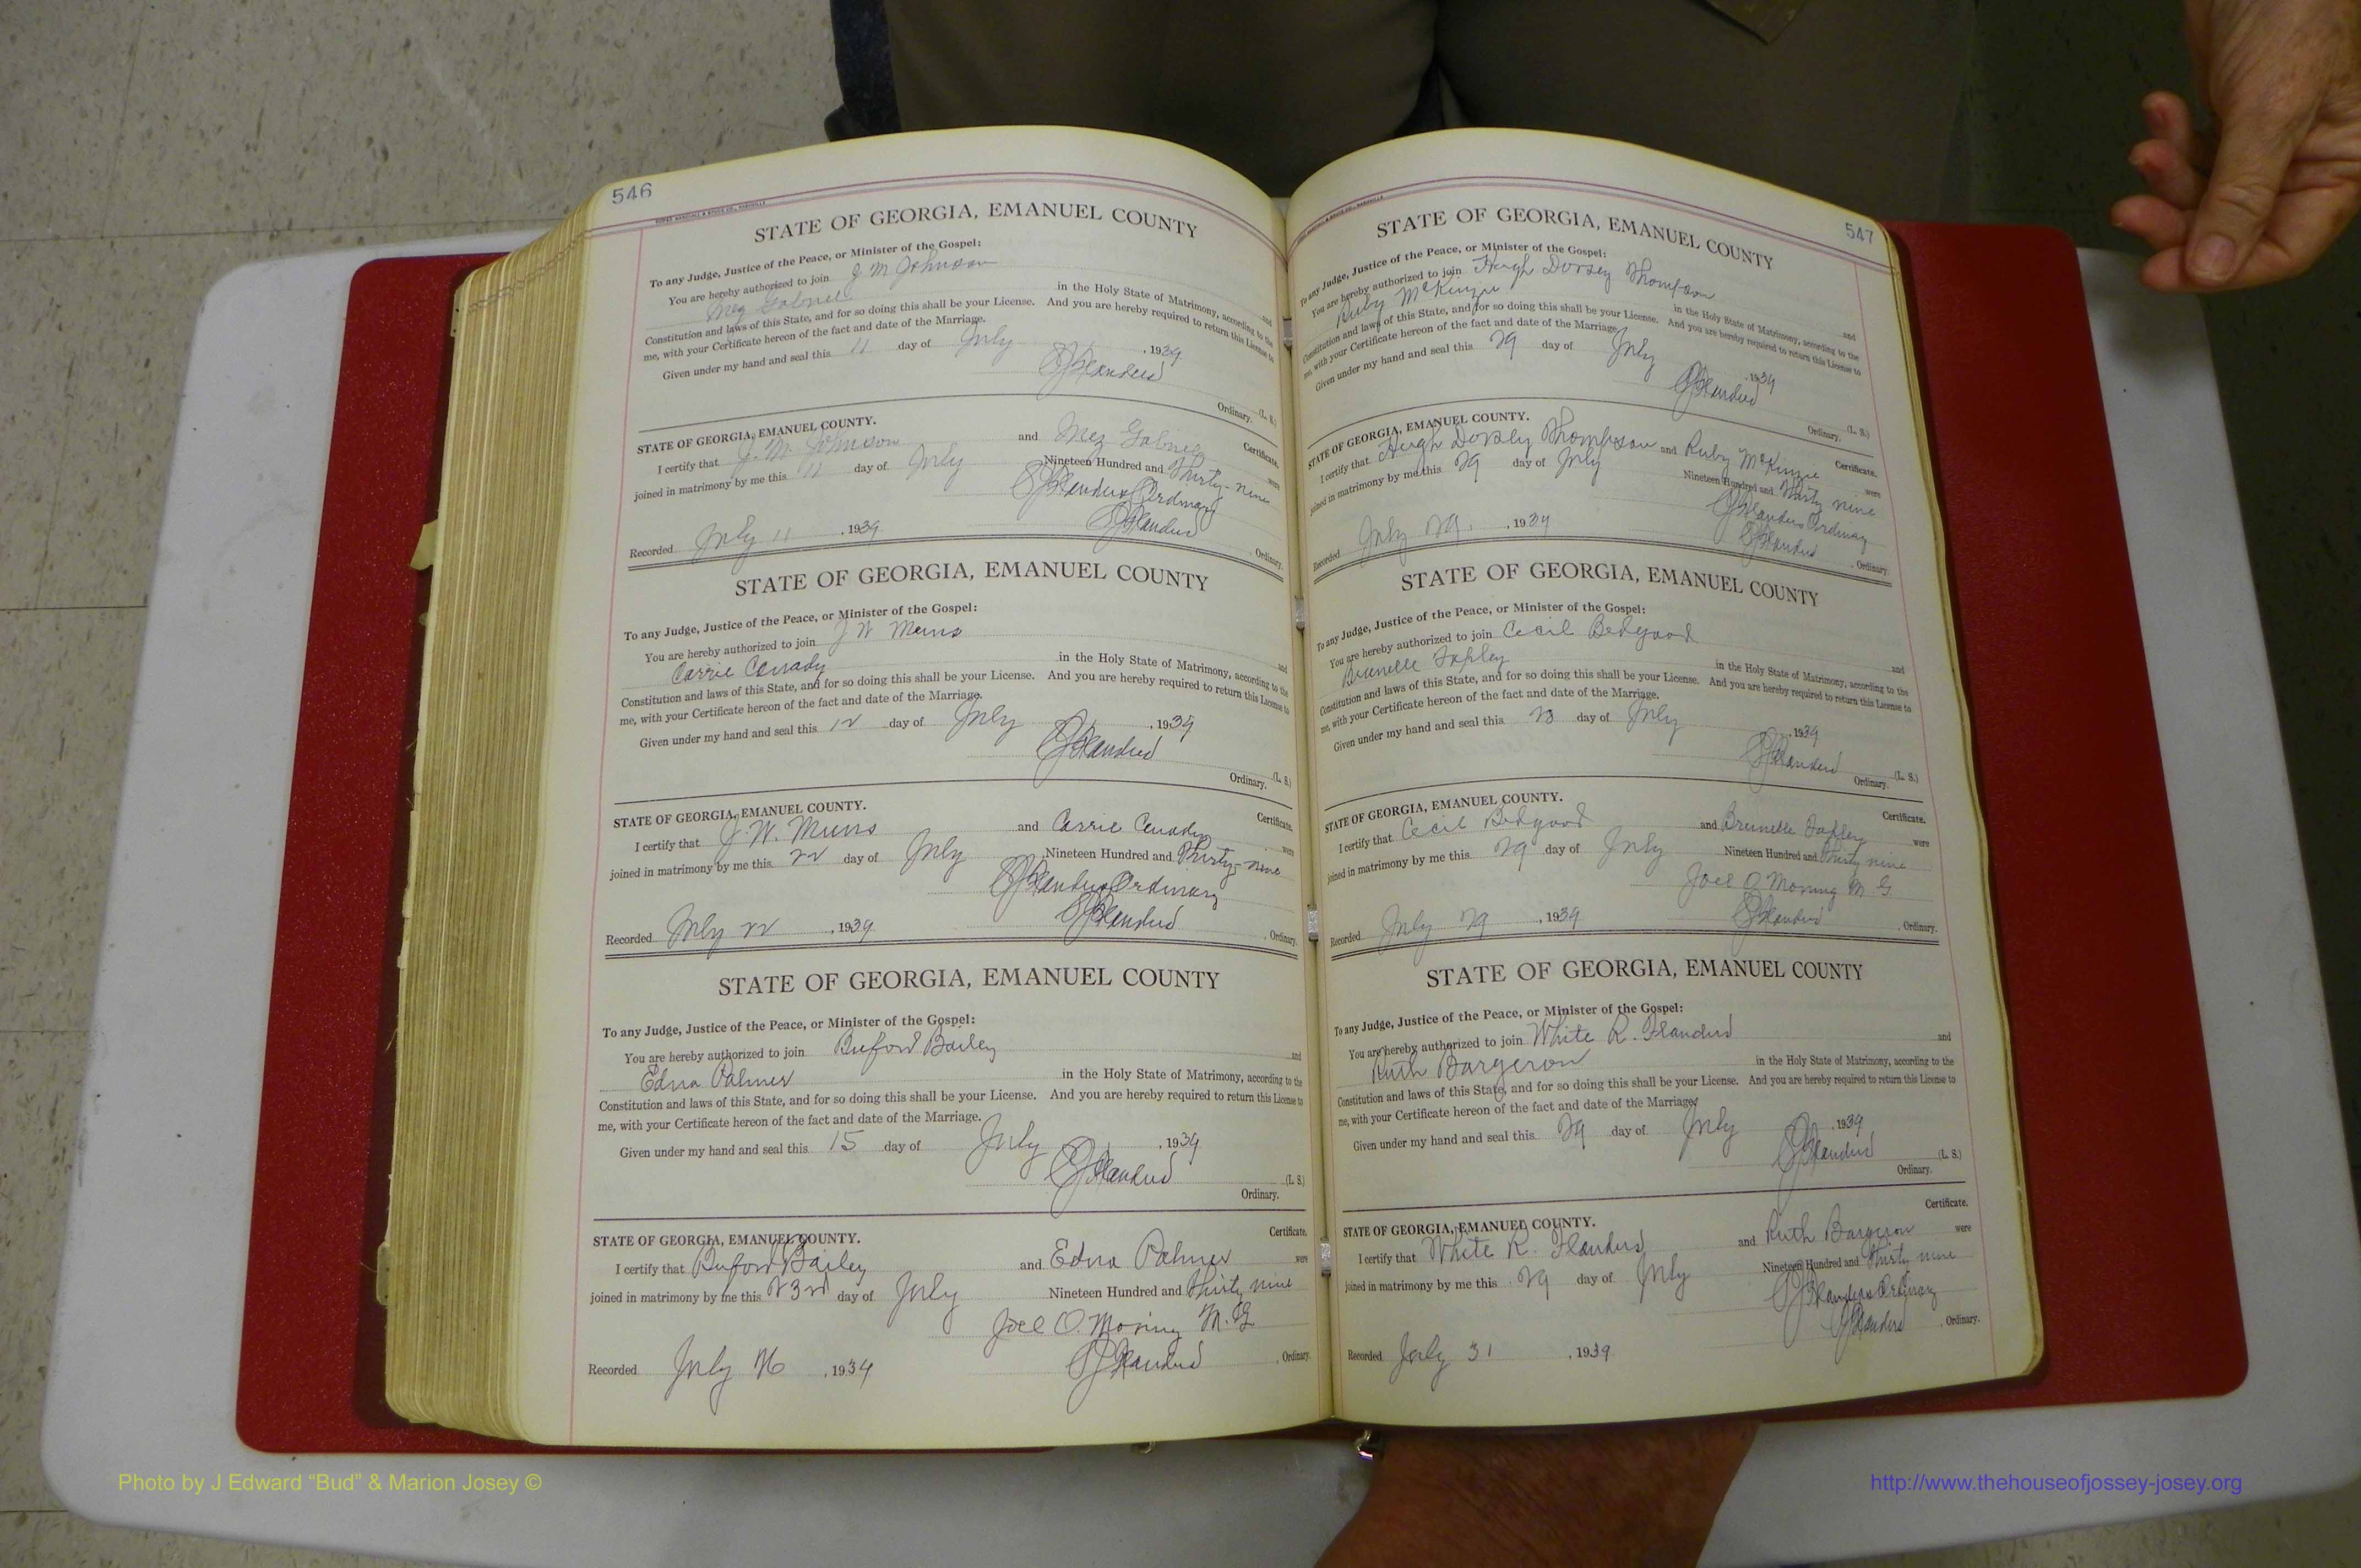 546
STATE OF GEORGIA, EMANUEL COUNTY
To any Judge, Justice of the Peace, or Minister of the Gospel:
You are hereby authorized to join J M Johnson and
Mez Gabriel in the Holy State of Matrimony, according to the
Constitution and laws of this State, and for so doing this shall be your License. And you are hereby required to return this License to
me, with your Certificate hereon of the fact and date of the Marriage.
Given under my hand and seal this 11 day of July, 1939
Flanders (L. S.)
Ordinary.
STATE OF GEORGIA, EMANUEL COUNTY. Certificate.
I certify that J. M. Johnson and Mez Gabriel were
joined in matrimony by me this 11 day of July Nineteen Hundred and Thirty-nine
Flanders Ordinary
Recorded July 11, 1939 Flanders, Ordinary.
STATE OF GEORGIA, EMANUEL COUNTY
To any Judge, Justice of the Peace, or Minister of the Gospel:
You are hereby authorized to join J W Mims and
Carrie Canady in the Holy State of Matrimony, according to the
Constitution and laws of this State, and for so doing this shall be your License. And you are hereby required to return this License to
me, with your Certificate hereon of the fact and date of the Marriage.
Given under my hand and seal this 12 day of July, 1939
Flanders (L. S.)
Ordinary.
STATE OF GEORGIA, EMANUEL COUNTY. Certificate.
I certify that J. W. Mims and Carrie Canady were
joined in matrimony by me this 22 day of July Nineteen Hundred and Thirty-nine
Flanders Ordinary
Recorded July 22, 1939 Flanders, Ordinary.
STATE OF GEORGIA, EMANUEL COUNTY
To any Judge, Justice of the Peace, or Minister of the Gospel:
You are hereby authorized to join Buford Bailey and
Edna Palmer in the Holy State of Matrimony, according to the
Constitution and laws of this State, and for so doing this shall be your License. And you are hereby required to return this License to
me, with your Certificate hereon of the fact and date of the Marriage.
Given under my hand and seal this 15 day of July, 1939
Flanders (L. S.)
Ordinary.
STATE OF GEORGIA, EMANUEL COUNTY. Certificate.
I certify that Buford Bailey and Edna Palmer were
joined in matrimony by me this 23rd day of July Nineteen Hundred and Thirty nine
Joel O. Moring M. G
Recorded July 26, 1939 Flanders, Ordinary.
547
STATE OF GEORGIA, EMANUEL COUNTY
To any Judge, Justice of the Peace, or Minister of the Gospel:
You are hereby authorized to join Hugh Dorsey Thompson and
Ruby McKinzie in the Holy State of Matrimony, according to the
Constitution and laws of this State, and for so doing this shall be your License. And you are hereby required to return this License to
me, with your Certificate hereon of the fact and date of the Marriage.
Given under my hand and seal this 29 day of July, 1939
Flanders (L. S.)
Ordinary.
STATE OF GEORGIA, EMANUEL COUNTY. Certificate.
I certify that Hugh Dorsey Thompson and Ruby McKinzie were
joined in matrimony by me this 29 day of July Nineteen Hundred and Thirty nine
Flanders Ordinary
Recorded July 29, 1939 Flanders, Ordinary.
STATE OF GEORGIA, EMANUEL COUNTY
To any Judge, Justice of the Peace, or Minister of the Gospel:
You are hereby authorized to join Cecil Bedgood and
Brunelle Tapley in the Holy State of Matrimony, according to the
Constitution and laws of this State, and for so doing this shall be your License. And you are hereby required to return this License to
me, with your Certificate hereon of the fact and date of the Marriage.
Given under my hand and seal this day of July, 1939
Flanders (L. S.)
Ordinary.
STATE OF GEORGIA, EMANUEL COUNTY. Certificate.
I certify that Cecil Bedgood and Brunelle Tapley were
joined in matrimony by me this 29 day of July Nineteen Hundred and Thirty nine
Joel O Moring M G
Recorded July 29, 1939 Flanders, Ordinary.
STATE OF GEORGIA, EMANUEL COUNTY
To any Judge, Justice of the Peace, or Minister of the Gospel:
You are hereby authorized to join White R. Flanders and
Ruth Bargeron in the Holy State of Matrimony, according to the
Constitution and laws of this State, and for so doing this shall be your License. And you are hereby required to return this License to
me, with your Certificate hereon of the fact and date of the Marriage.
Given under my hand and seal this 29 day of July, 1939
Flanders (L. S.)
Ordinary.
STATE OF GEORGIA, EMANUEL COUNTY. Certificate.
I certify that White R. Flanders and Ruth Bargeron were
joined in matrimony by me this 29 day of July Nineteen Hundred and Thirty nine
Flanders Ordinary
Recorded July 31, 1939 Flanders, Ordinary.
Photo by J Edward “Bud” & Marion Josey ©
http://www.thehouseofjossey-josey.org